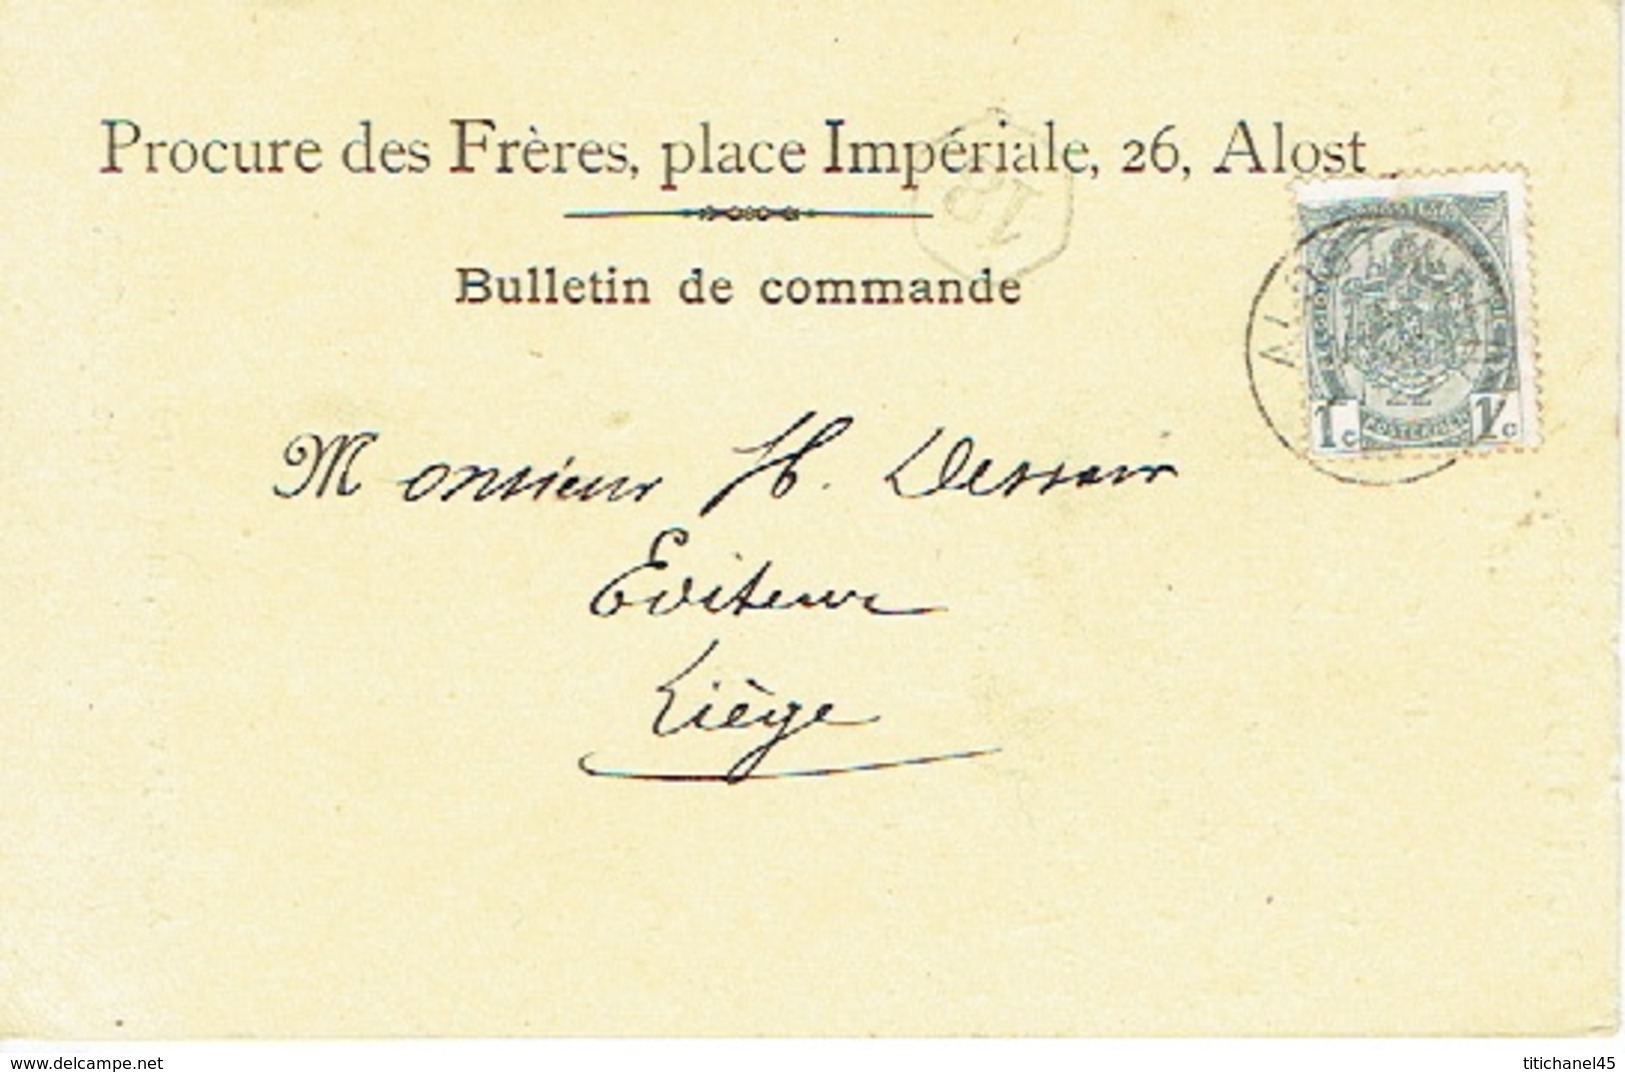 Procure des Frères, place Impériale, 26, Alost
18
Bulletin de commande
22
1c 1c
Monsieur H. Dessain
Editeur
Liège
www.delcampe.net
titichanel45